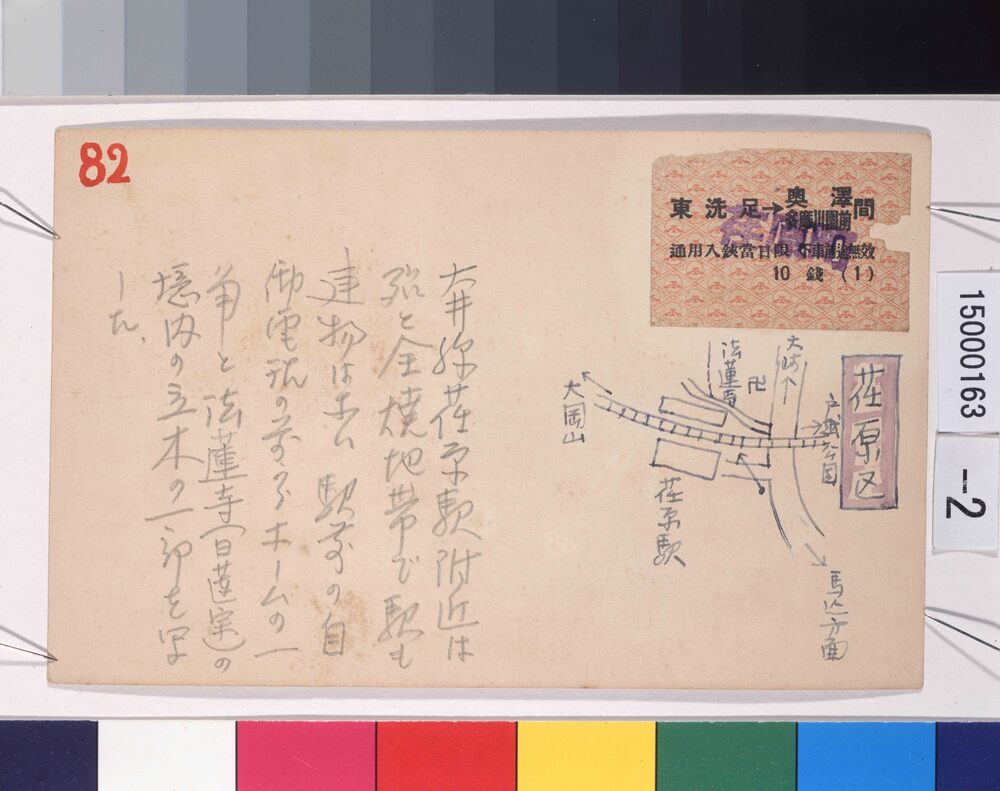 82
東洗足→奥澤
多摩川園前
間
荏原町
通用入鋏當日限 下車前途無效
10 錢 (1)
荏原区
戸越公園
大崎へ
卍
法蓮寺
大岡山
荏原駅
馬込方面
大井線荏原駅附近は
殆と全焼地帯で駅も
建物はなし 駅前の自
働電話の前からホームの一
角と法蓮寺(日蓮宗)の
境内の立木の一部を写
した、
15000163
-2